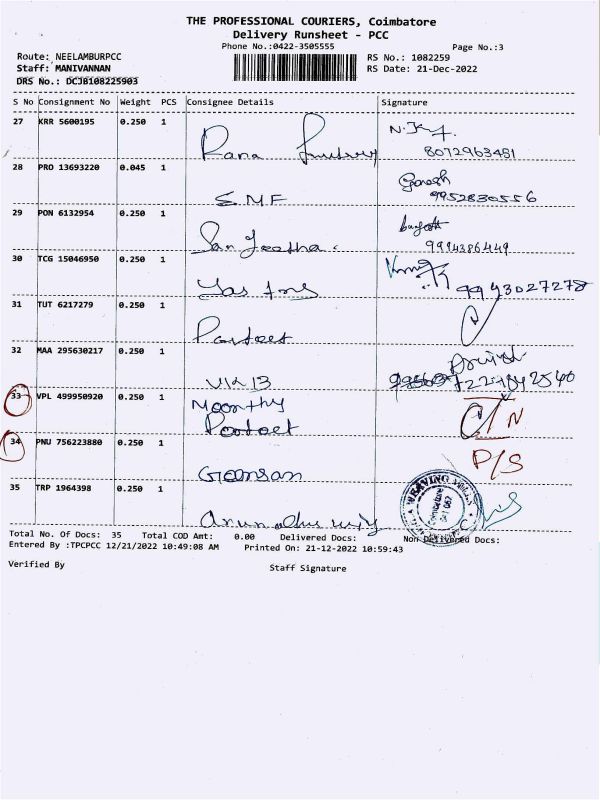 THE PROFESSIONAL COURIERS, Coimbatore
Delivery Runsheet - PCC
Phone No.:0422-3505555
Page No.:3
Route: NEELAMBURPCC
RS No.: 1082259
Staff: MANIVANNAN
RS Date: 21-Dec-2022
DRS No.: DCJB108225903
S No Consignment No Weight PCS Consignee Details Signature
27 KRR 5600195 0.250 1
Rana
8072963481
28 PRO 13693220 0.045 1
Ganesh
SMF 9952830556
29 PON 6132954 0.250 1
Sangeetha. 9994386449
30 TCG 15046950 0.250 1
9943027278
31 TUT 6217279 0.250 1
32 MAA 295630217 0.250 1
33 VPL 499950920 0.250 1
Moorthy
C/N
34 PNU 756223880 0.250 1
P/S
35 TRP 1964398 0.250 1
WEAVING MILLS
Total No. Of Docs: 35 Total COD Amt: 0.00 Delivered Docs: Non Delivered Docs:
Entered By :TPCPCC 12/21/2022 10:49:08 AM Printed On: 21-12-2022 10:59:43
Verified By Staff Signature